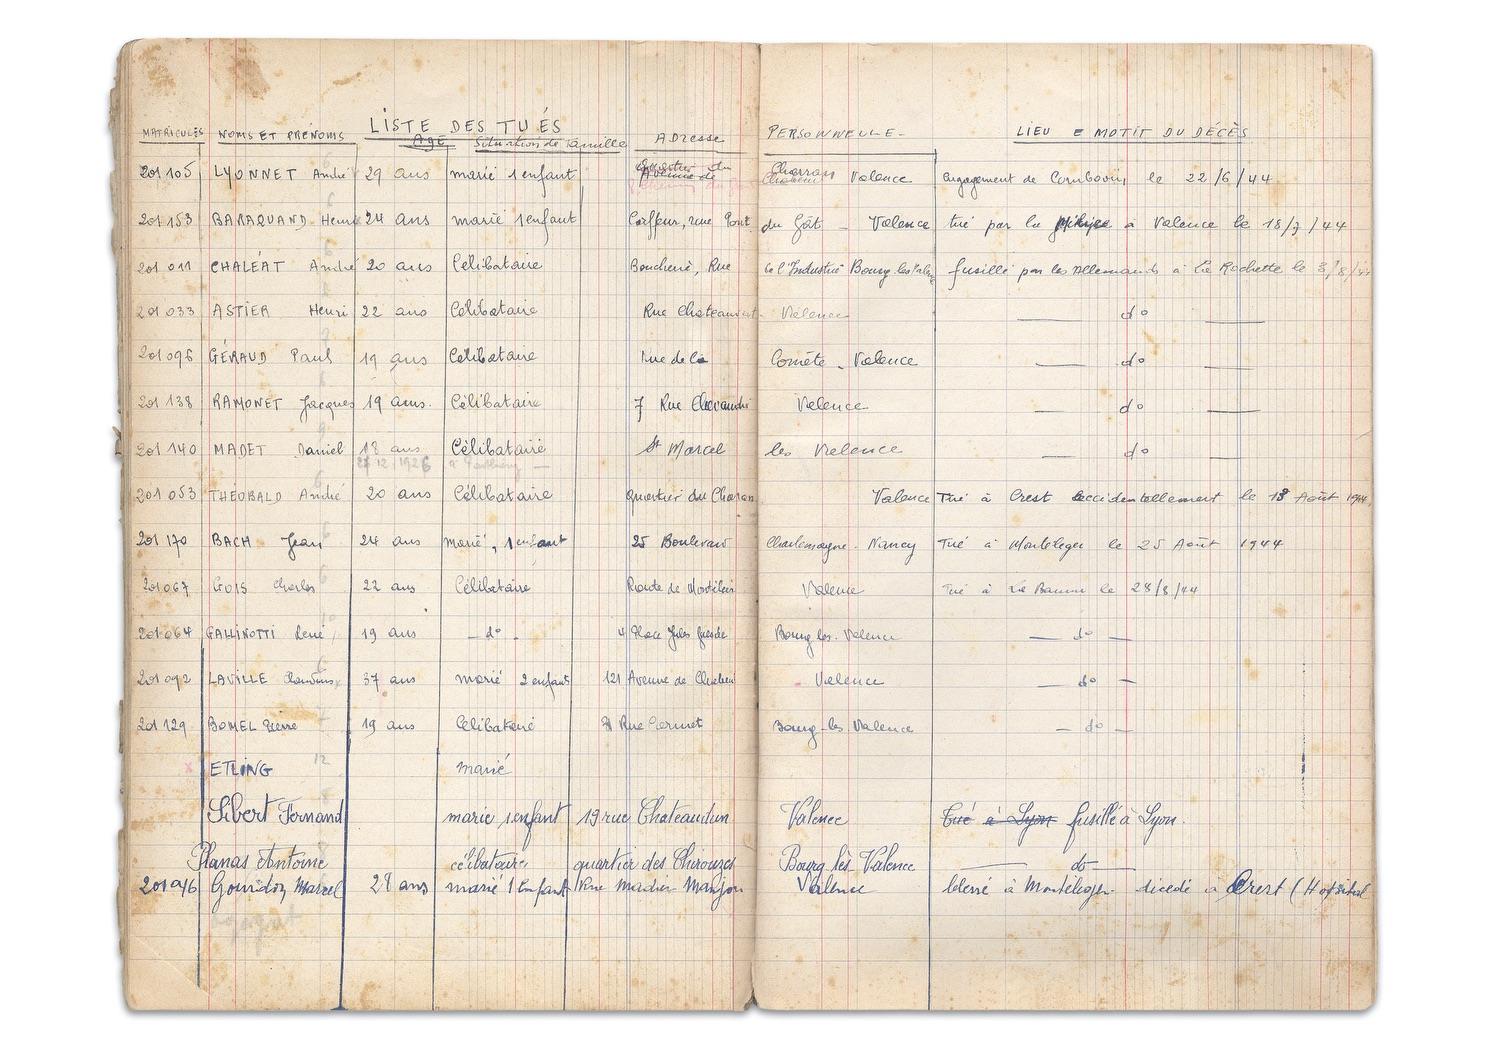 LISTE DES TUÉS
MATRICULES NOMS ET PRÉNOMS AGE Situation de Famille ADresse PERSONNELLE - LIEU E MOTIF DU DÉCÈS
201 105 LYONNET André 29 ans marié 1 enfant Valence engagement de Combovin le 22/6/44
201 153 BARAQUAND Henri 24 ans marié 1 enfant Coiffeur, rue Pont du Gât - Valence tué par la Milice à Valence le 18/7/44
201 011 CHALÉAT André 20 ans Célibataire Boucherie, Rue de l'Industrie Bourg les Valence fusillé par les Allemands à La Rochette le 3/8/44
201 033 ASTIER Henri 22 ans Célibataire Rue Chateauvert - Valence — d° —
201 096 GÉRAUD Paul 19 ans Célibataire rue de la Comète - Valence — d° —
201 138 RAMONET Jacques 19 ans. Célibataire 7 Rue Valence — d° —
201 140 MADET Daniel 18 ans Célibataire St Marcel les Valence — d° —
27.12.1926 à
201 053 THÉOBALD André 20 ans Célibataire Quartier du Charran Valence Tué à Crest accidentellement le 18 Août 1944
201 170 BACH Jean 24 ans marié, 1 enfant 25 Boulevard Charlemagne - Nancy Tué à Montéleger le 25 Août 1944
201 067 GOIS Charles 22 ans Célibataire Route de Valence Tué à La Baume le 28/8/44
201 064 GALLINOTTI René 19 ans — d° - 4 Place Jules Guesde Bourg-les-Valence — d° —
201 092 LAVILLE 37 ans marié 2 enfants 121 Avenue de Chabeuil Valence — d° —
201 129 BOMEL Pierre 19 ans Célibataire Rue Bourg-les-Valence — d° —
ETLING marié
Sibert Fernand marié 1 enfant 19 rue Chateaudun Valence Tué à Lyon fusillé à Lyon.
Planas Antoine célibataire quartier des Chirouzes Bourg lès Valence — d° —
201 046 Gourdon Marcel 28 ans marié 1 enfant Rue Madier Monjou Valence blessé à Montéleger décédé à Crest (Hopital